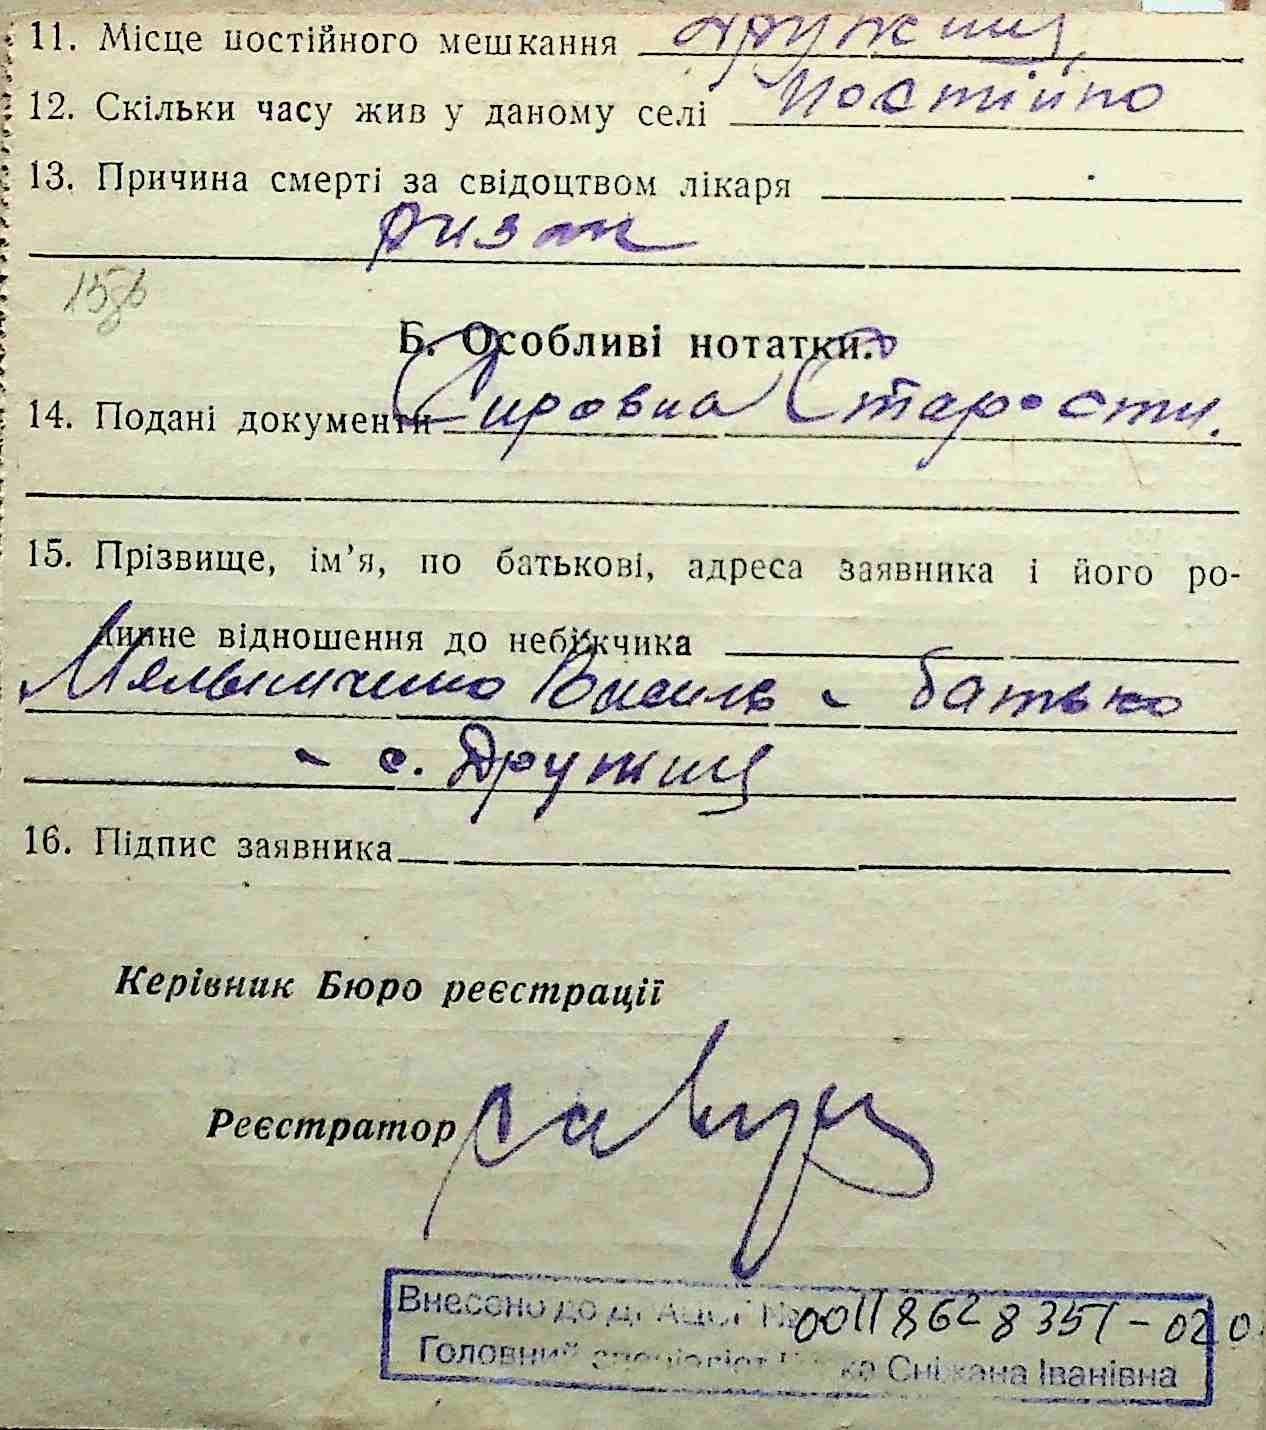 11. Місце постійного мешкання Дружня
12. Скільки часу жив у даному селі постійно
13. Причина смерті за свідоцтвом лікаря
Б. Особливі нотатки.
14. Подані документи Старости.
15. Прізвище, ім'я, по батькові, адреса заявника і його ро-
динне відношення до небіжчика
Василь - батько
- с. Дружня
16. Підпис заявника
Керівник Бюро реєстрації
Реєстратор
Внесено до ДРАЦСГ № 00118628351-02.0
Головний спеціаліст Сніжана Іванівна